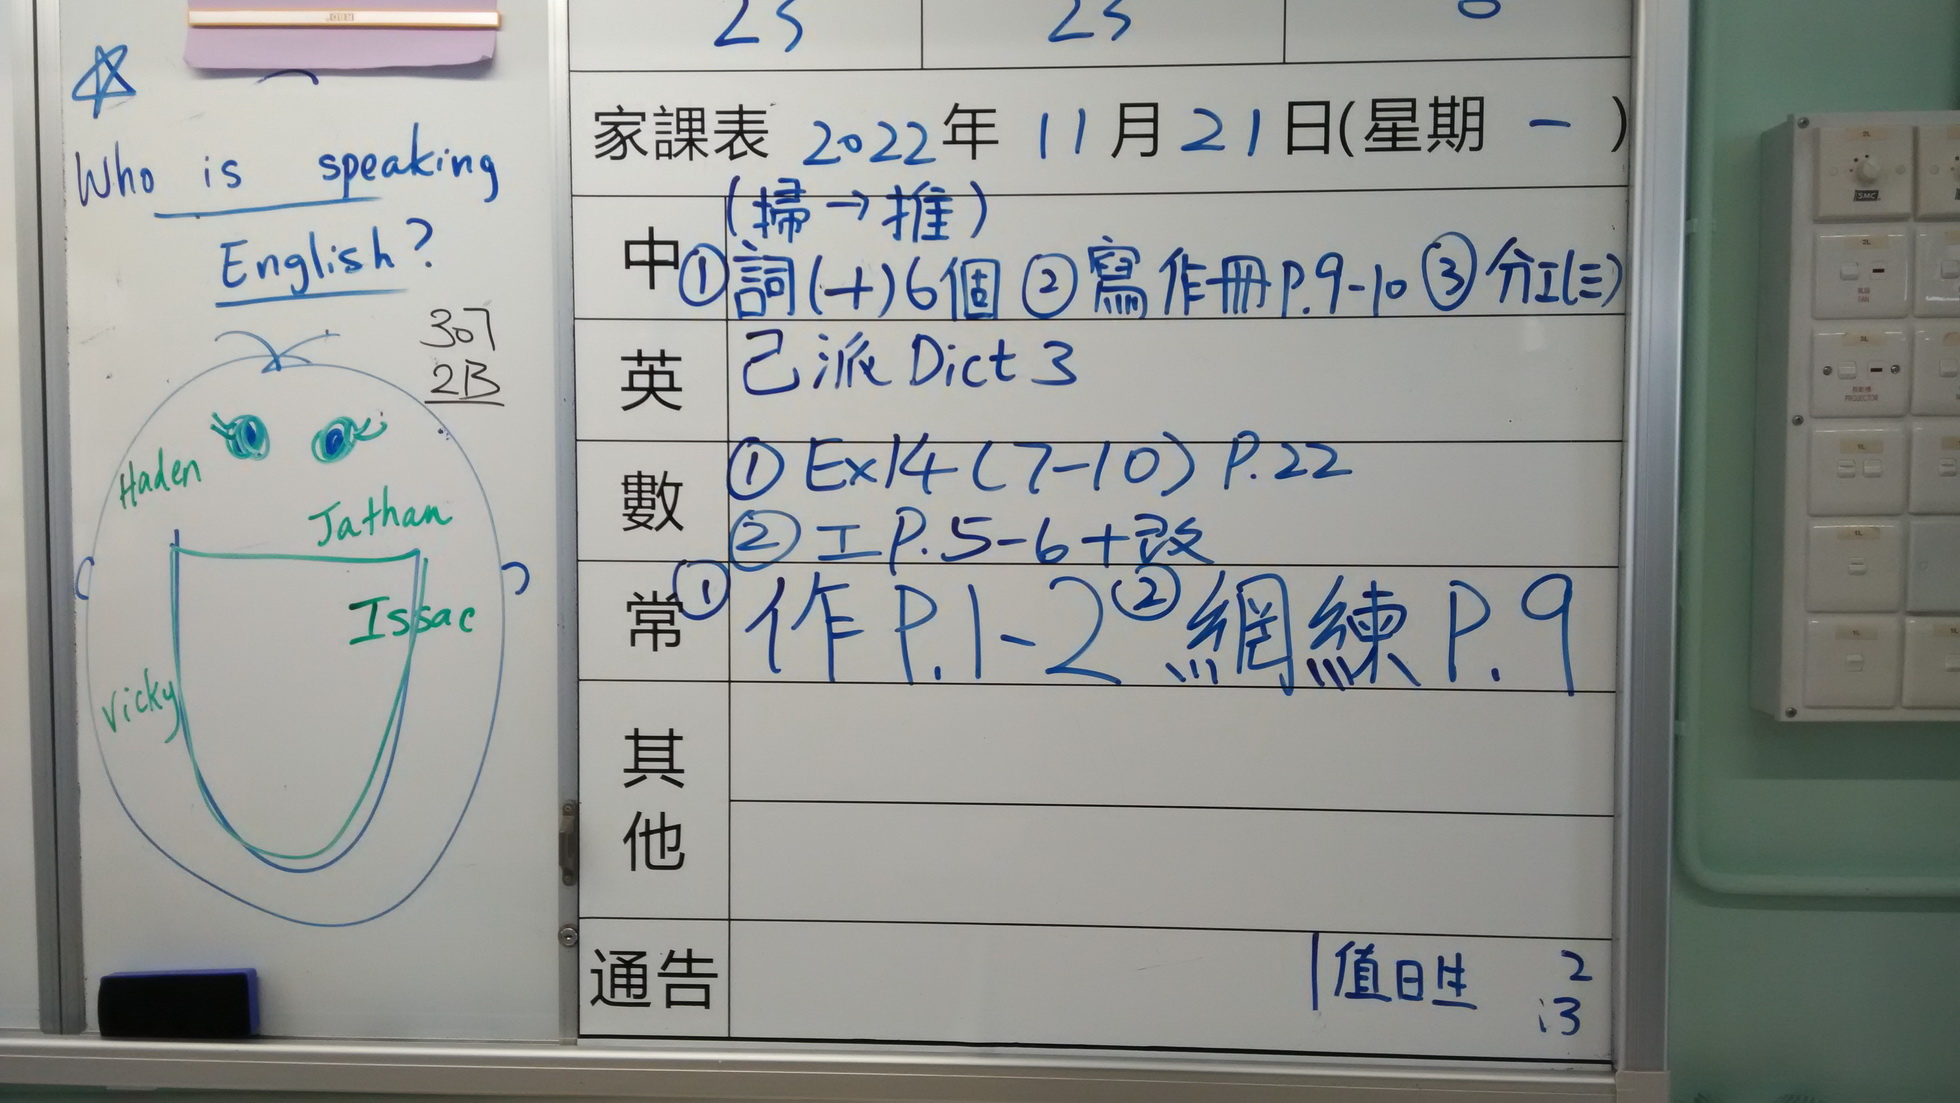 Who is speaking
English?
307
2B
Haden
Jathan
Issac
Vicky
23 23
家課表 2022年 11月21日(星期 一 )
中 (掃→推)
①詞(十)6個 ②寫作冊P.9-10 ③分工(三)
英 己派 Dict 3
數 ① Ex14 (7-10) P.22
② 工 P.5-6+改
常 ① 作P.1-2 ② 網練 P.9
其他
通告 值日生 2
13
PROJECTOR